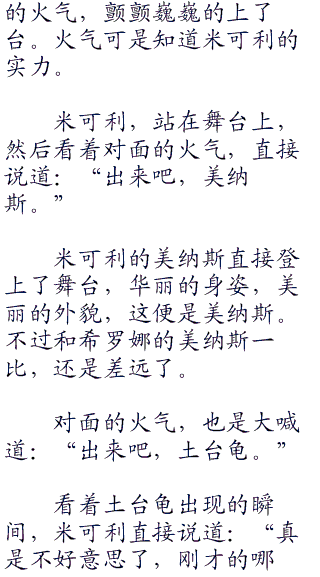 的火气，颤颤巍巍的上了
台。火气可是知道米可利的
实力。
米可利，站在舞台上，
然后看着对面的火气，直接
说道：“出来吧，美纳
斯。”
米可利的美纳斯直接登
上了舞台，华丽的身姿，美
丽的外貌，这便是美纳斯。
不过和希罗娜的美纳斯一
比，还是差远了。
对面的火气，也是大喊
道：“出来吧，土台龟。”
看着土台龟出现的瞬
间，米可利直接说道：“真
是不好意思了，刚才的哪